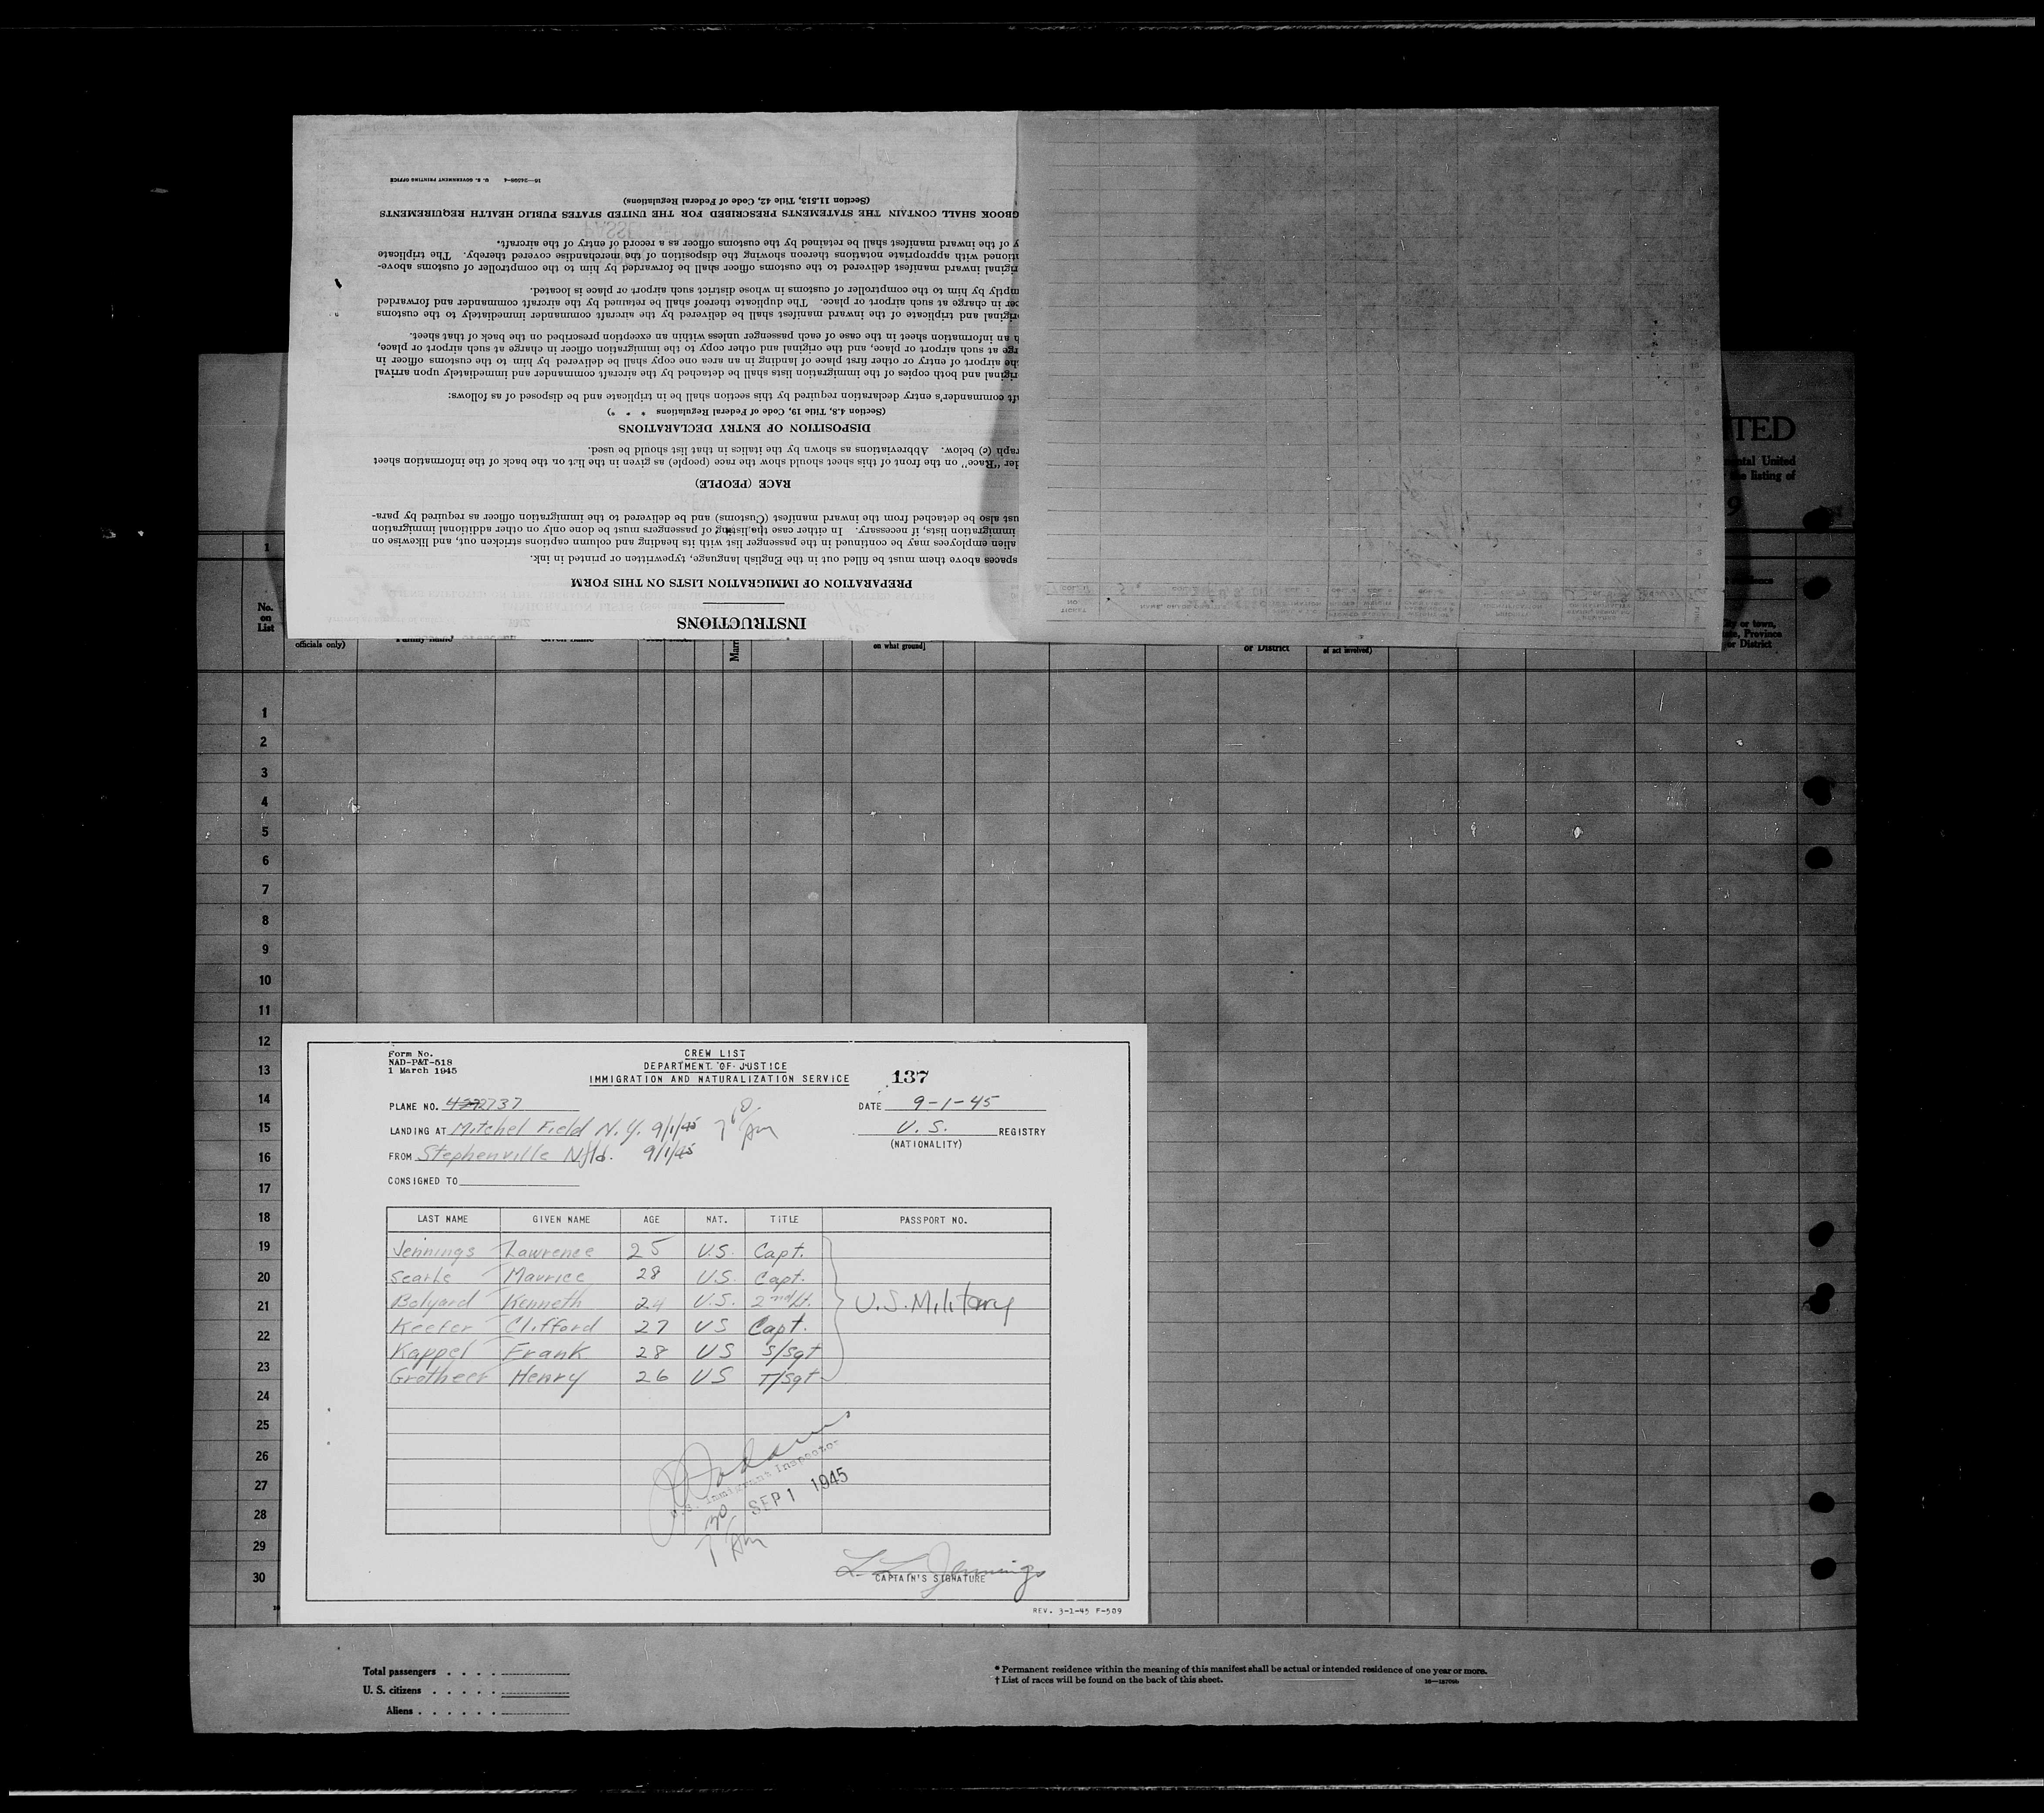 INSTRUCTIONS
PREPARATION OF IMMIGRATION LISTS ON THIS FORM
spaces above them must be filled out in the English language, typewritten or printed in ink.
alien employees may be continued in the passenger list with its heading and column captions stricken out, and likewise on
immigration lists, if necessary. In either case the listing of passengers must be done only on other additional immigration
ust also be detached from the inward manifest (Customs) and be delivered to the immigration officer as required by para-
RACE (PEOPLE)
der "Race" on the front of this sheet should show the race (people) as given in the list on the back of the information sheet
raph (c) below. Abbreviations as shown by the italics in that list should be used.
DISPOSITION OF ENTRY DECLARATIONS
(Section 4.8, Title 19, Code of Federal Regulations * * *)
ft commander's entry declaration required by this section shall be in triplicate and be disposed of as follows:
riginal and both copies of the immigration lists shall be detached by the aircraft commander and immediately upon arrival
he airport of entry or other first place of landing in an area one copy shall be delivered by him to the customs officer in
rge at such airport or place, and the original and other copy to the immigration officer in charge at such airport or place,
h an information sheet in the case of each passenger unless within an exception prescribed on the back of that sheet.
riginal and triplicate of the inward manifest shall be delivered by the aircraft commander immediately to the customs
cer in charge at such airport or place. The duplicate thereof shall be retained by the aircraft commander and forwarded
mptly by him to the comptroller of customs in whose district such airport or place is located.
riginal inward manifest delivered to the customs officer shall be forwarded by him to the comptroller of customs above-
tioned with appropriate notations thereon showing the disposition of the merchandise covered thereby. The triplicate
y of the inward manifest shall be retained by the customs officer as a record of entry of the aircraft.
GBOOK SHALL CONTAIN THE STATEMENTS PRESCRIBED FOR THE UNITED STATES PUBLIC HEALTH REQUIREMENTS
(Section 11.513, Title 42, Code of Federal Regulations)
16—24508-4 U. S. GOVERNMENT PRINTING OFFICE
TED
ntal United
the listing of
9
1
No.
on
List
officials only)
on what ground]
or District
of act involved)
City or town,
ate, Province
or District
1
2
3
4
5
6
7
8
9
10
11
12
13
14
15
16
17
18
19
20
21
22
23
24
25
26
27
28
29
30
Form No.
NAD-P&T-518
1 March 1945
CREW LIST
DEPARTMENT OF JUSTICE
IMMIGRATION AND NATURALIZATION SERVICE
137
PLANE NO. 2737
DATE 9-1-45
LANDING AT Mitchel Field N.Y. 9/1/45
U.S. REGISTRY
(NATIONALITY)
FROM Stephenville Nfld. 9/1/45
CONSIGNED TO
LAST NAME GIVEN NAME AGE NAT. TITLE PASSPORT NO.
Jennings Lawrence 25 U.S. Capt.
Searle Maurice 28 U.S. Capt.
Bolyard Kenneth 24 U.S. 2nd Lt. U.S. Military
Keefer Clifford 27 US Capt.
Kappel Frank 28 US S/Sgt
Grotheer Henry 26 US T/Sgt
U.S. Immigrant Inspector
SEP 1 1945
L L Jennings
CAPTAIN'S SIGNATURE
REV. 3-1-45 F-509
Total passengers
U. S. citizens
Aliens
* Permanent residence within the meaning of this manifest shall be actual or intended residence of one year or more.
† List of races will be found on the back of this sheet.